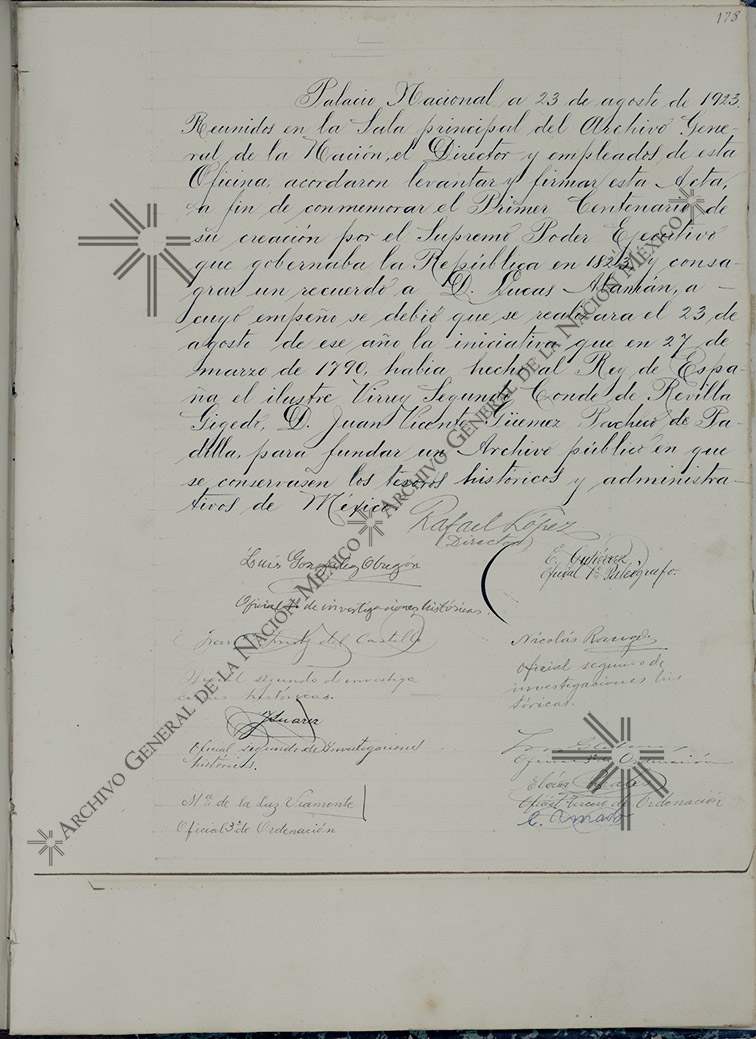 178
Palacio Nacional a 23 de agosto de 1923.
Reunidos en la Sala principal del Archivo Gene-
ral de la Nación, el Director y empleados de esta
Oficina, acordaron levantar y firmar esta Acta,
a fin de conmemorar el Primer Centenario de
su creación por el Supremo Poder Ejecutivo
que gobernaba la República en 1823, y consa-
grar un recuerdo a D. Lucas Alamán, a -
cuyo empeño se debió que se realizara el 23 de
agosto de ese año la iniciativa que en 27 de
marzo de 1790, había hecho al Rey de Espa-
ña el ilustre Virrey Segundo Conde de Revilla
Gigedo, D. Juan Vicente Güemez Pacheco de Pa-
dilla, para fundar un Archivo público en que
se conservasen los tesoros históricos y administra-
tivos de México.
Rafael López
Director
Luis González Obregón
Oficial de investigaciones históricas.
E. Gutiérrez
Oficial 1º Paleógrafo.
del Castillo
Oficial segundo de investiga
ciones históricas.
Nicolás Rangel
Oficial segundo de
investigaciones his
tóricas.
J Juarez
Oficial segundo de Investigaciones
históricas.
Ordenación
Oficial Tercero de Ordenación
Mª de la Luz Viamonte
Oficial 3º de Ordenación
C. Amado
Archivo General de la Nación México
Archivo General de la Nación México